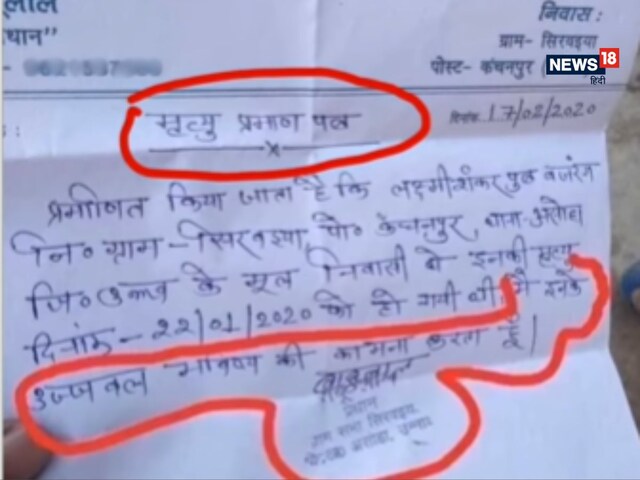 लाल
धान"
निवास :
ग्राम- सिरवइया
पोस्ट- कंचनपुर (
NEWS 18
हिंदी
मृत्यु प्रमाण पत्र
दिनांक 17/02/2020
प्रमाणित किया जाता है कि लक्ष्मीशंकर पुत्र बजरंग
नि० ग्राम-सिरवइया, पो० कंचनपुर, थाना-असोहा
जि० उन्नाव के मूल निवासी थे इनकी मृत्यु
दिनांक-22/01/2020 को हो गयी थी, मैं इनके
उज्जवल भविष्य की कामना करता हूँ।
प्रधान
ग्राम सभा सिरवइया